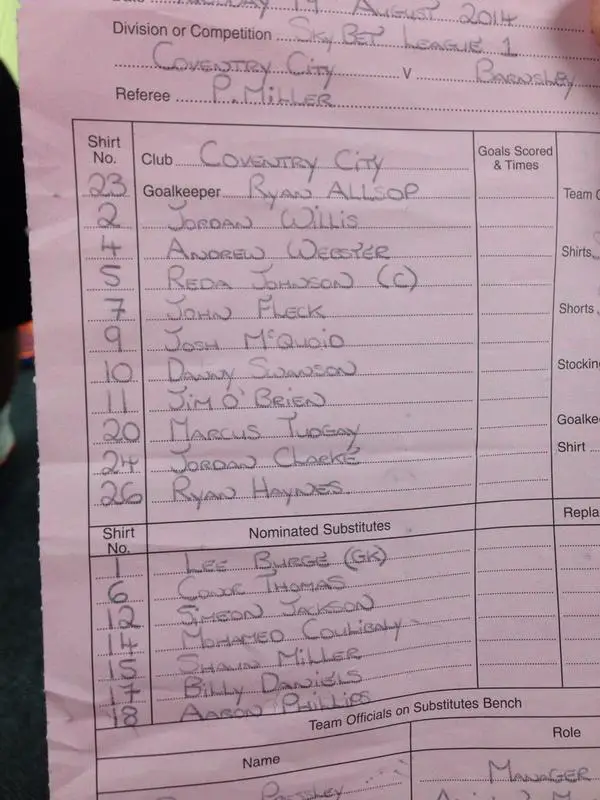 August 2014
Division or Competition Sky Bet League 1
Coventry City v Barnsley
Referee P. Miller
Shirt No. Club Coventry City Goals Scored & Times
23 Goalkeeper Ryan Allsop Team
2 Jordan Willis
4 Andrew Webster Shirts
5 Reda Johnson (C)
7 John Fleck Shorts
9 Josh McQuoid
10 Danny Swanson Stocking
11 Jim O'Brien
20 Marcus Tudgay Goalke
24 Jordan Clarke Shirt
26 Ryan Haynes
Shirt No. Nominated Substitutes Repla
1 Lee Burge (GK)
6 Conor Thomas
12 Simeon Jackson
14 Mohamed Coulibaly
15 Shaun Miller
17 Billy Daniels
18 Aaron Phillips
Team Officials on Substitutes Bench
Name Role
Pressley Manager